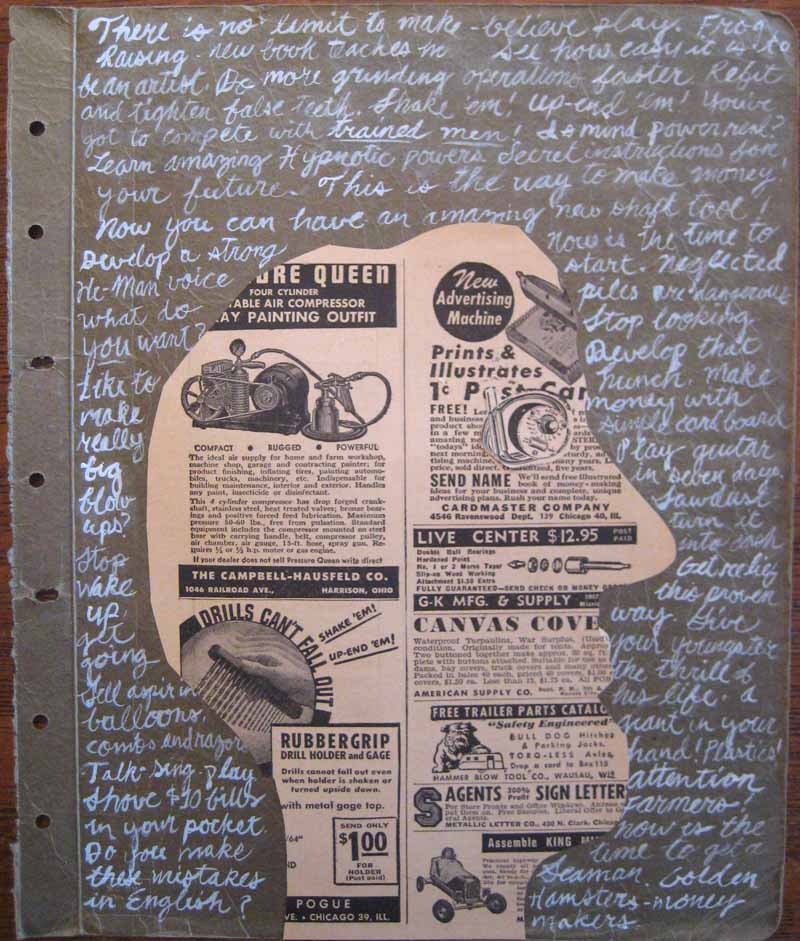 There is no limit to make-believe play. Frog
Raising - new book teaches in See how easy it is to
be an artist. Do more grinding operations faster. Refit
and tighten false teeth. Shake 'em! up-end 'em! You've
got to compete with trained men! Is mind power real?
Learn amazing Hypnotic powers. Secret instructions for
your future. This is the way to make money!
Now you can have an amazing new shaft tool!
Develop a strong
He-Man voice
what do
you want?
Like to
make
really
big
blow
ups?
Stop
wake
up
get
going
Sell aspirin
balloons,
combs and razor
Talk-sing-play
Shove $10 bills
in your pocket.
Do you make
these mistakes
in English?
Now is the time to
start. neglected
piles are dangerous
Stop looking
Develop that
hunch. make
money with
simple cardboard
star
Get
this proven
way. Give
your youngster
the thrill of
his life. a
giant in your
hand! Plastics!
attention
Farmers-
now is the
time to get a
Seaman. Golden
Hamsters-money
makers.
URE QUEEN
FOUR CYLINDER
TABLE AIR COMPRESSOR
AY PAINTING OUTFIT
COMPACT • RUGGED • POWERFUL
The ideal air supply for home and farm workshop,
machine shop, garage and contracting painter; for
product finishing, inflating tires, painting automo-
biles, trucks, machinery, etc. Indispensable for
building maintenance, interior and exterior. Handles
any paint, insecticide or disinfectant.
This 4 cylinder compressor has drop forged crank-
shaft, stainless steel, heat treated valves; bronze bear-
ings and positive forced feed lubrication. Maximum
pressure 50-60 lbs., free from pulsation. Standard
equipment includes the compressor mounted on steel
base with carrying handle, belt, compressor pulley,
air chamber, air gauge, 15-ft. hose, spray gun. Re-
quires ¼ or ⅓ h.p. motor or gas engine.
If your dealer does not sell Pressure Queen write direct
THE CAMPBELL-HAUSFELD CO.
1046 RAILROAD AVE., HARRISON, OHIO
DRILLS CAN'T FALL OUT
SHAKE 'EM!
UP-END 'EM!
RUBBERGRIP
DRILL HOLDER and GAGE
Drills cannot fall out even
when holder is shaken or
turned upside down.
with metal gage top.
/64"
SEND ONLY
$1.00
FOR
HOLDER
(Post paid)
POGUE
VE. • CHICAGO 39, ILL.
New
Advertising
Machine
Prints &
Illustrates
1c Post Car
FREE!
and business
product sho
in a few m
amazing ne
"todays" id
next morning
tising machine
price, sold direct. five years.
SEND NAME We'll send free illustrated
book of money-making
ideas for your business and complete, unique
advertising plans. Rush your name today.
CARDMASTER COMPANY
4546 Ravenswood Dept. 139 Chicago 40, Ill.
LIVE CENTER $12.95 POST PAID
Double Ball Bearings
Hardened Point
No. 1 or 2 Morse Taper
Slip-on Wood Working
Attachment $1.50 Extra
FULLY GUARANTEED—SEND CHECK OR MONEY ORD
G-K MFG. & SUPPLY
CANVAS COVE
Waterproof Tarpaulins, War Surplus, (Used
condition. Originally made for tents. Approx
Two buttoned together make approx.
plete with buttons attached. Suitable for
dams, bay covers, truck covers and many other
Packed in bales 40 each, priced
AMERICAN SUPPLY CO.
FREE TRAILER PARTS CATALO
"Safety Engineered"
BULL DOG Hitches
& Parking Jacks,
TORQ-LESS Axles,
Drop a card to Box 115
HAMMER BLOW TOOL CO., WAUSAU, WIS.
AGENTS 300% Profit SIGN LETTER
For Store Fronts and Office Windows. Anyone
put them on. Free Samples. Liberal Offer to G
eral Agents.
METALLIC LETTER CO., 430 N. Clark, Chicago
Assemble KING MI